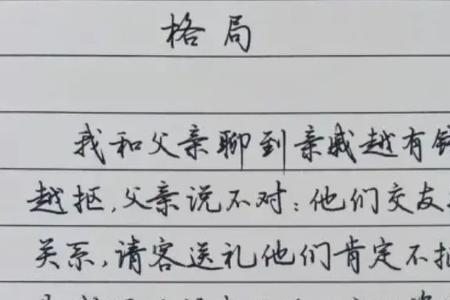 格局
我和父亲聊到亲戚越有钱
越抠,父亲说不对:他们交友
关系,请客送礼他们肯定不抠